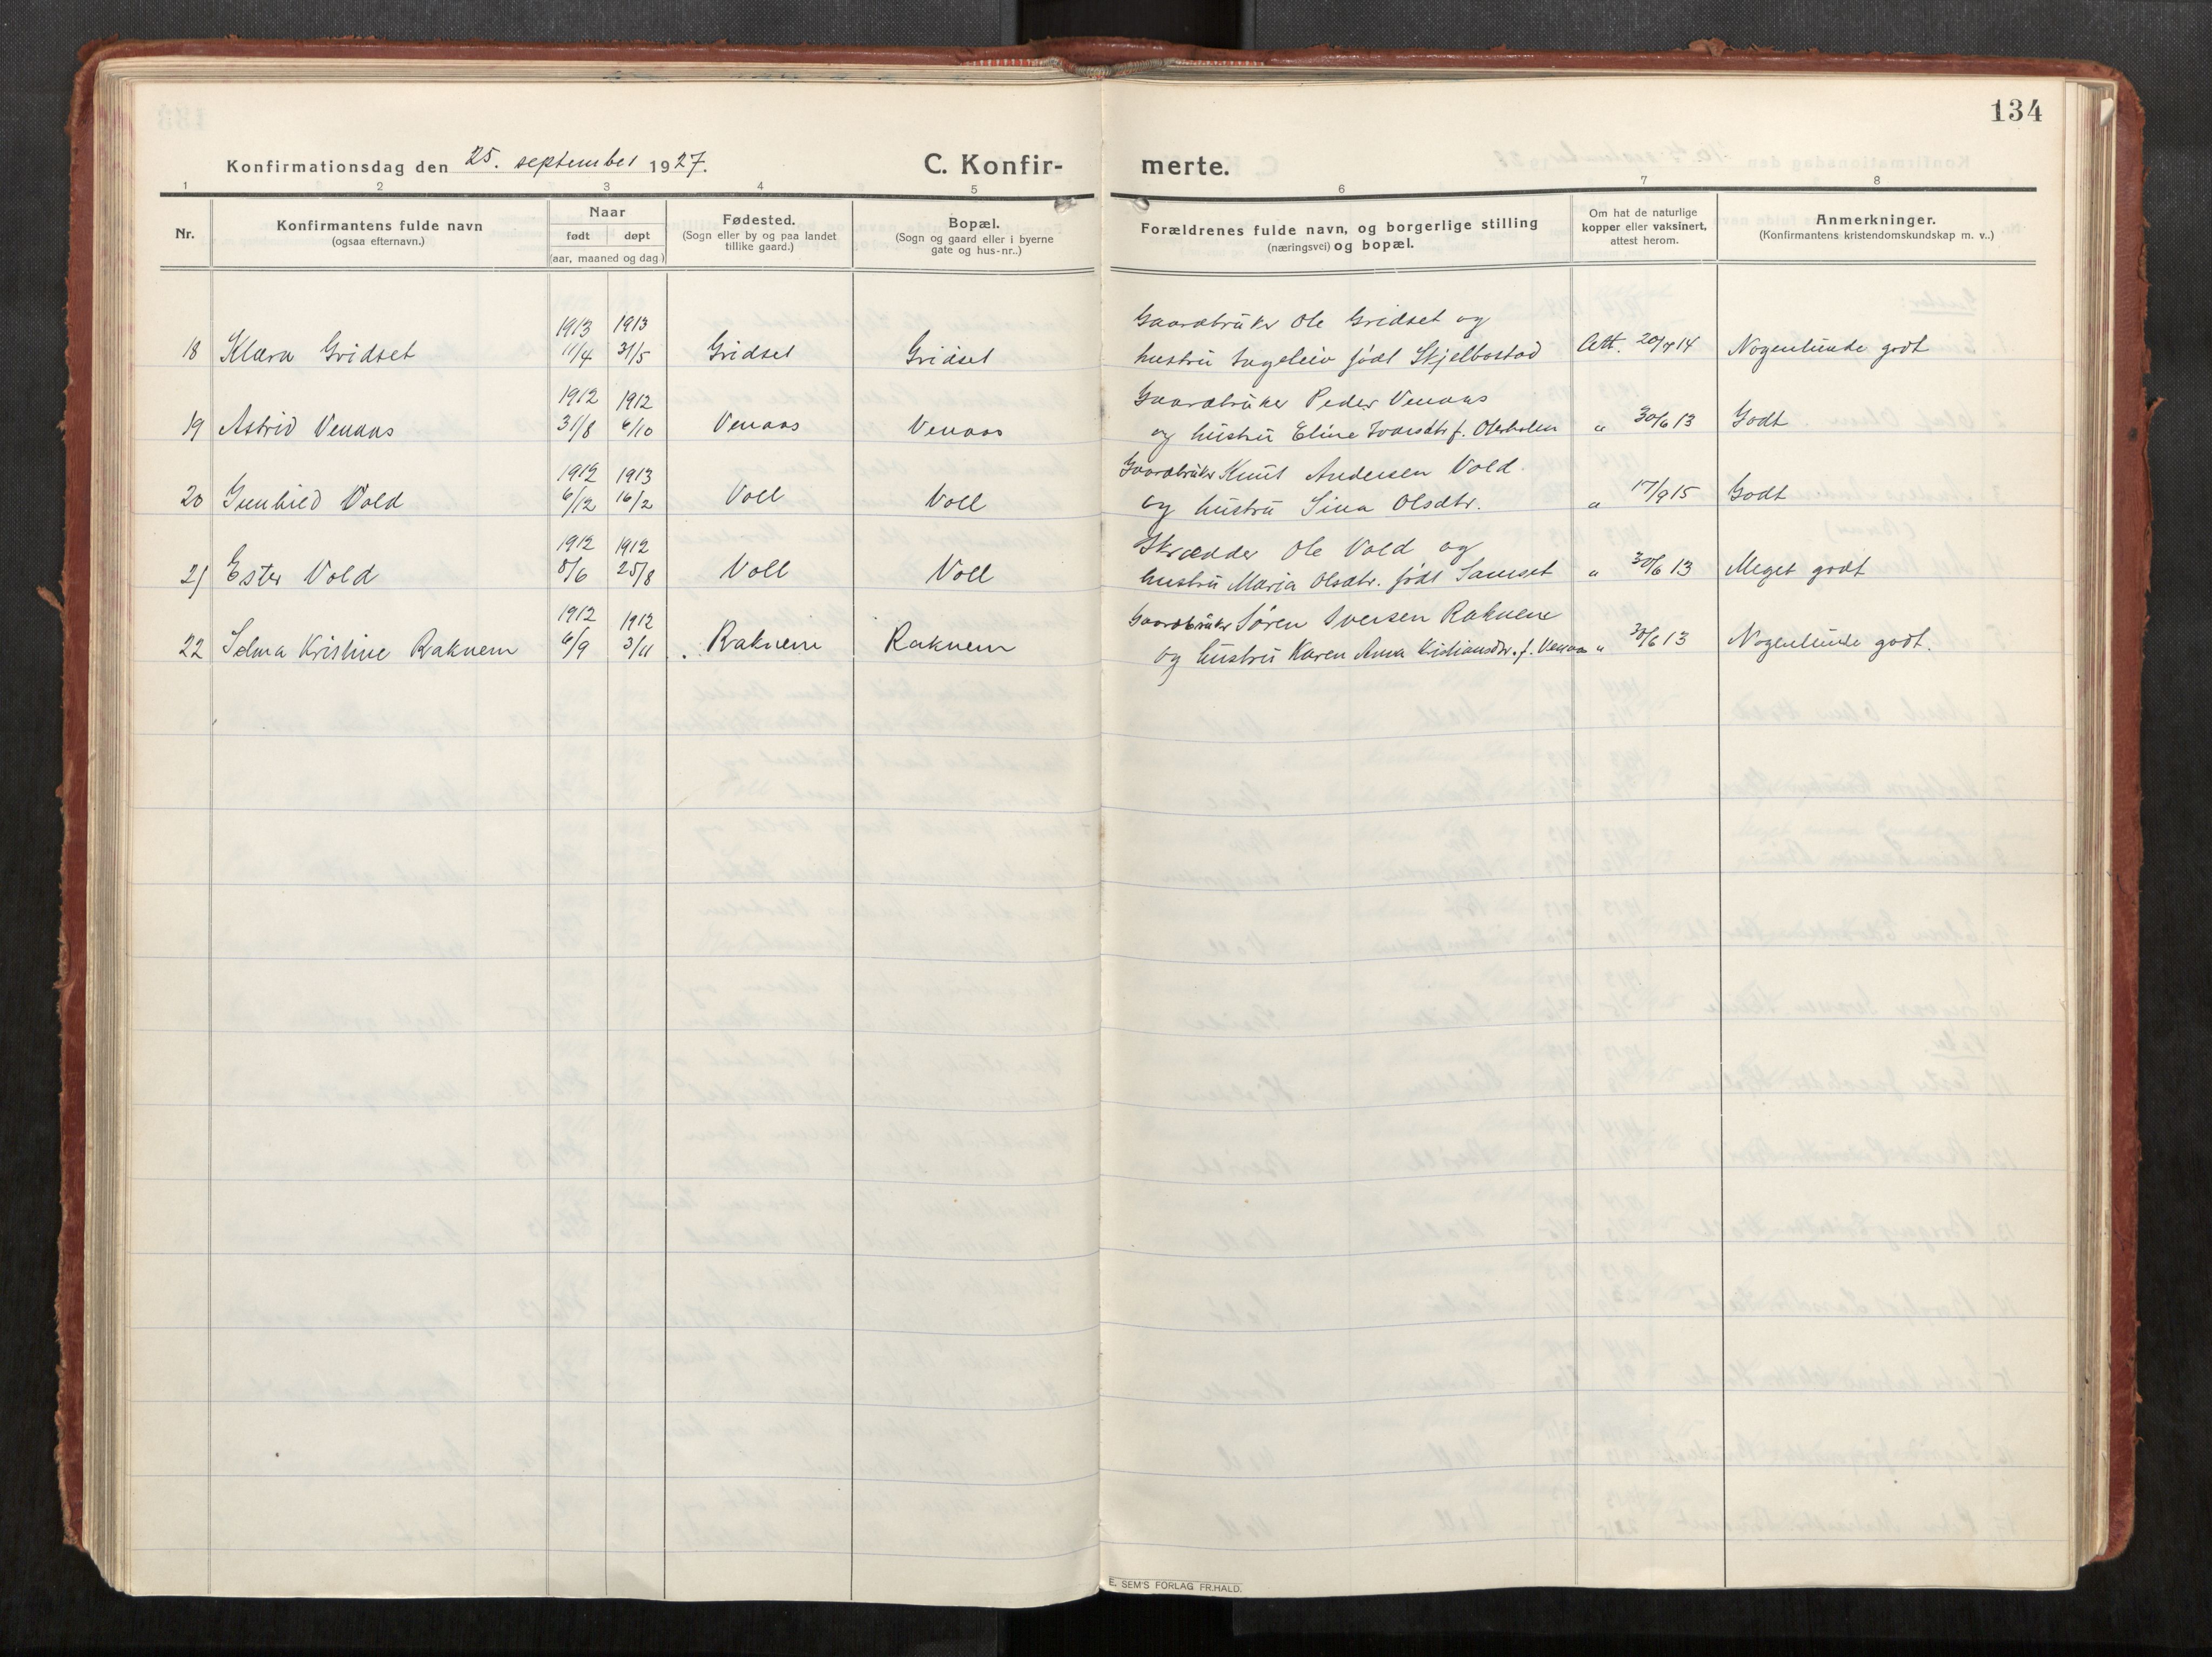 134
Konfirmationsdag den 25. september 1927.
C. Konfir-
merte.
1 2 3 4 5 6 7 8
Nr.
Konfirmantens fulde navn
(ogsaa efternavn.)
Naar
født døpt
(aar, maaned og dag)
Fødested.
(Sogn eller by og paa landet
tillike gaard.)
Bopæl.
(Sogn og gaard eller i byerne
gate og hus-nr..)
Forældrenes fulde navn, og borgerlige stilling
(næringsvei) og bopæl.
Om hat de naturlige
kopper eller vaksinert,
attest herom.
Anmerkninger.
(Konfirmantens kristendomskundskap m. v..)
1913 1913 Gaardbruker Ole Gridset og
18 Klara Gridset 11/4 31/5 Gridset Gridset hustru Ingeleiv født Skjelbostad Att. 20/7 14 Nogenlunde godt
1912 1912 Gaardbruker Peder Venaas
19 Astrid Venaas 31/8 6/10 Venaas Venaas og hustru Eline Ivarsdtr f. Oterholen " 30/6 13 Godt
1912 1913 Gaardbruker Knut Andersen Vold.
20 Gunhild Vold 6/12 16/2 Voll Voll og hustru Sina Olsdtr. " 17/9 15 Godt
1912 1912 Skrædder Ole Vold og
21 Ester Vold 8/6 25/8 Voll Voll hustru Maria Olsdtr. født Samset " 30/6 13 Meget godt
1912 1912 Gaardbruker Søren Iversen Raknem
22 Selma Kristine Raknem 6/9 3/11 Raknem Raknem og hustru Karen Anna Kristiansdtr. f. Venaas " 30/6 13 Nogenlunde godt.
E. SEM'S FORLAG FR.HALD.